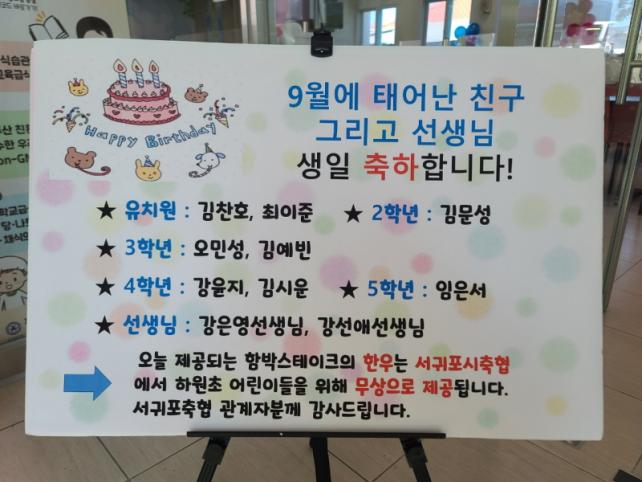 Happy Birthday
9월에 태어난 친구
그리고 선생님
생일 축하합니다!
★ 유치원 : 김찬호, 최이준 ★ 2학년 : 김문성
★ 3학년 : 오민성, 김예빈
★ 4학년 : 강윤지, 김시윤 ★ 5학년 : 임은서
★ 선생님 : 강은영선생님, 강선애선생님
오늘 제공되는 함박스테이크의 한우는 서귀포시축협
에서 하원초 어린이들을 위해 무상으로 제공됩니다.
서귀포축협 관계자분께 감사드립니다.
식습관